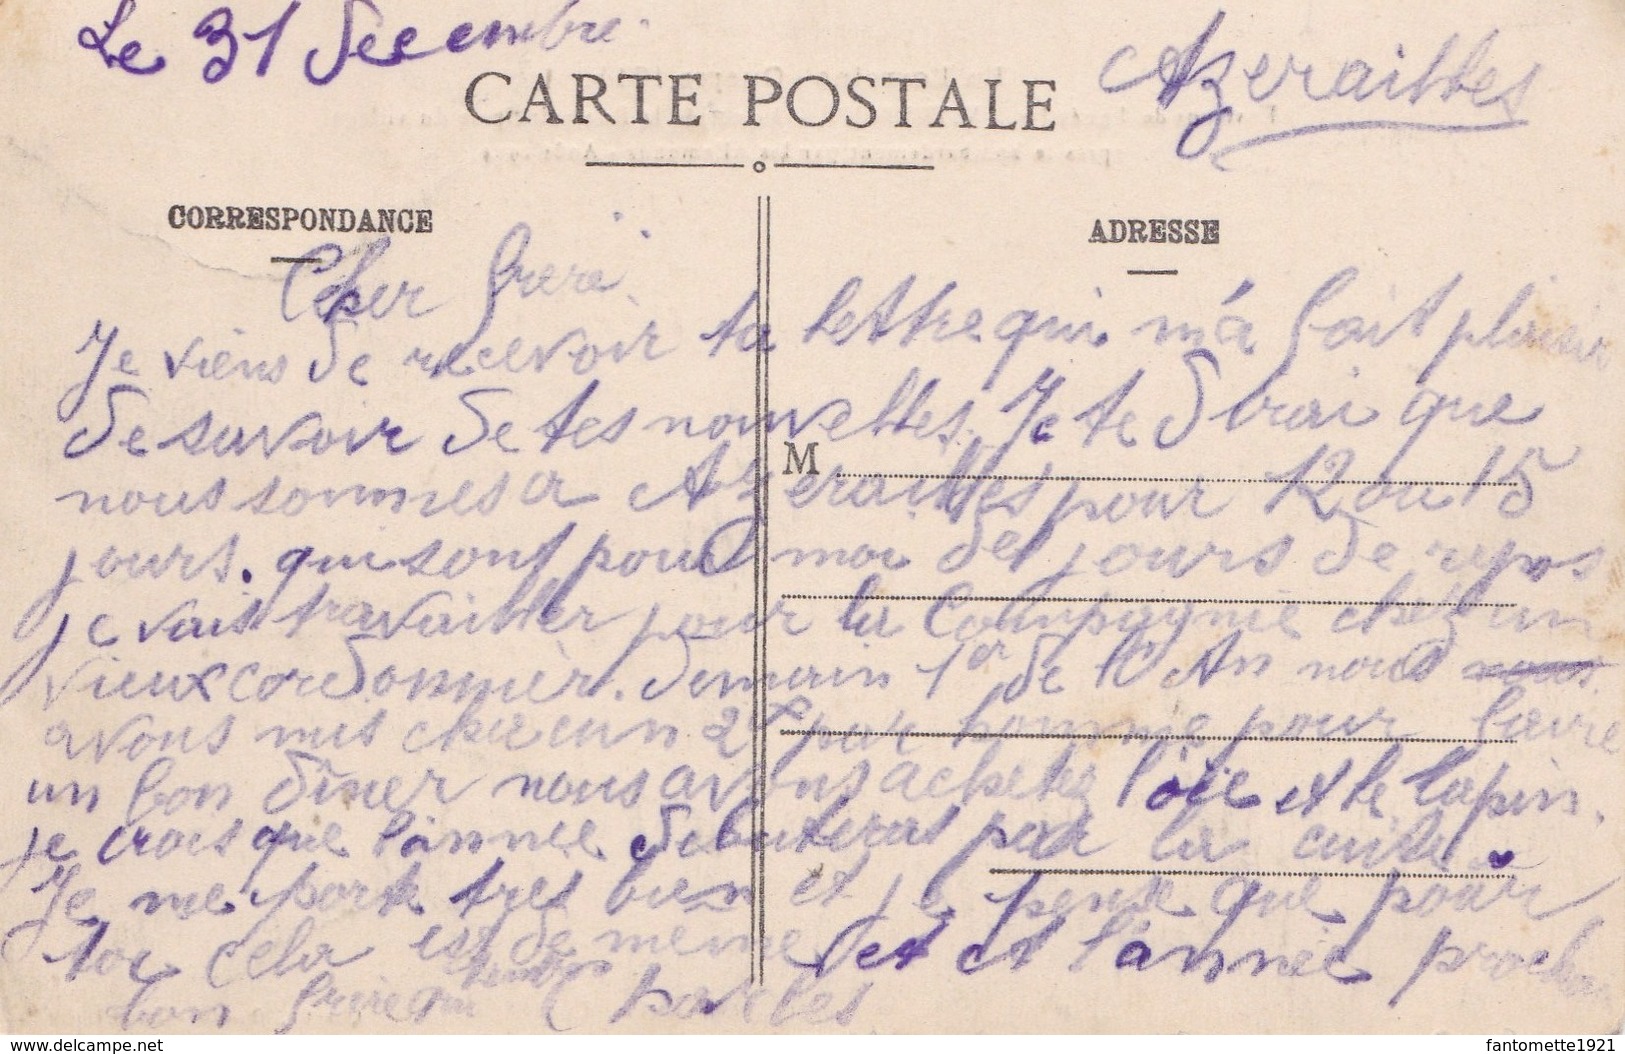 Le 31 Decembre
Azerailles
CARTE POSTALE
CORRESPONDANCE
ADRESSE
Cher frere
Je viens de recevoir ta lettre qui m'a fait plaisir
de savoir de tes nouvelles. Je te dirai que
M
nous sommes a Azerailles pour 12 ou 15
jours. qui sont pour moi des jours de repos
je vais travailler pour la Compagnie chez un
vieux cordonnier. Demain 1er de l'An nous
avons mis chacun 2 par homme pour faire
un bon dîner nous avons achetez l'oie et le lapin.
je crois que l'année debuteras par la cuite
Je me porte tres bien et je pense que pour
toi cela est de meme et et l'année
bon frere Charles
www.delcampe.net
fantomette1921